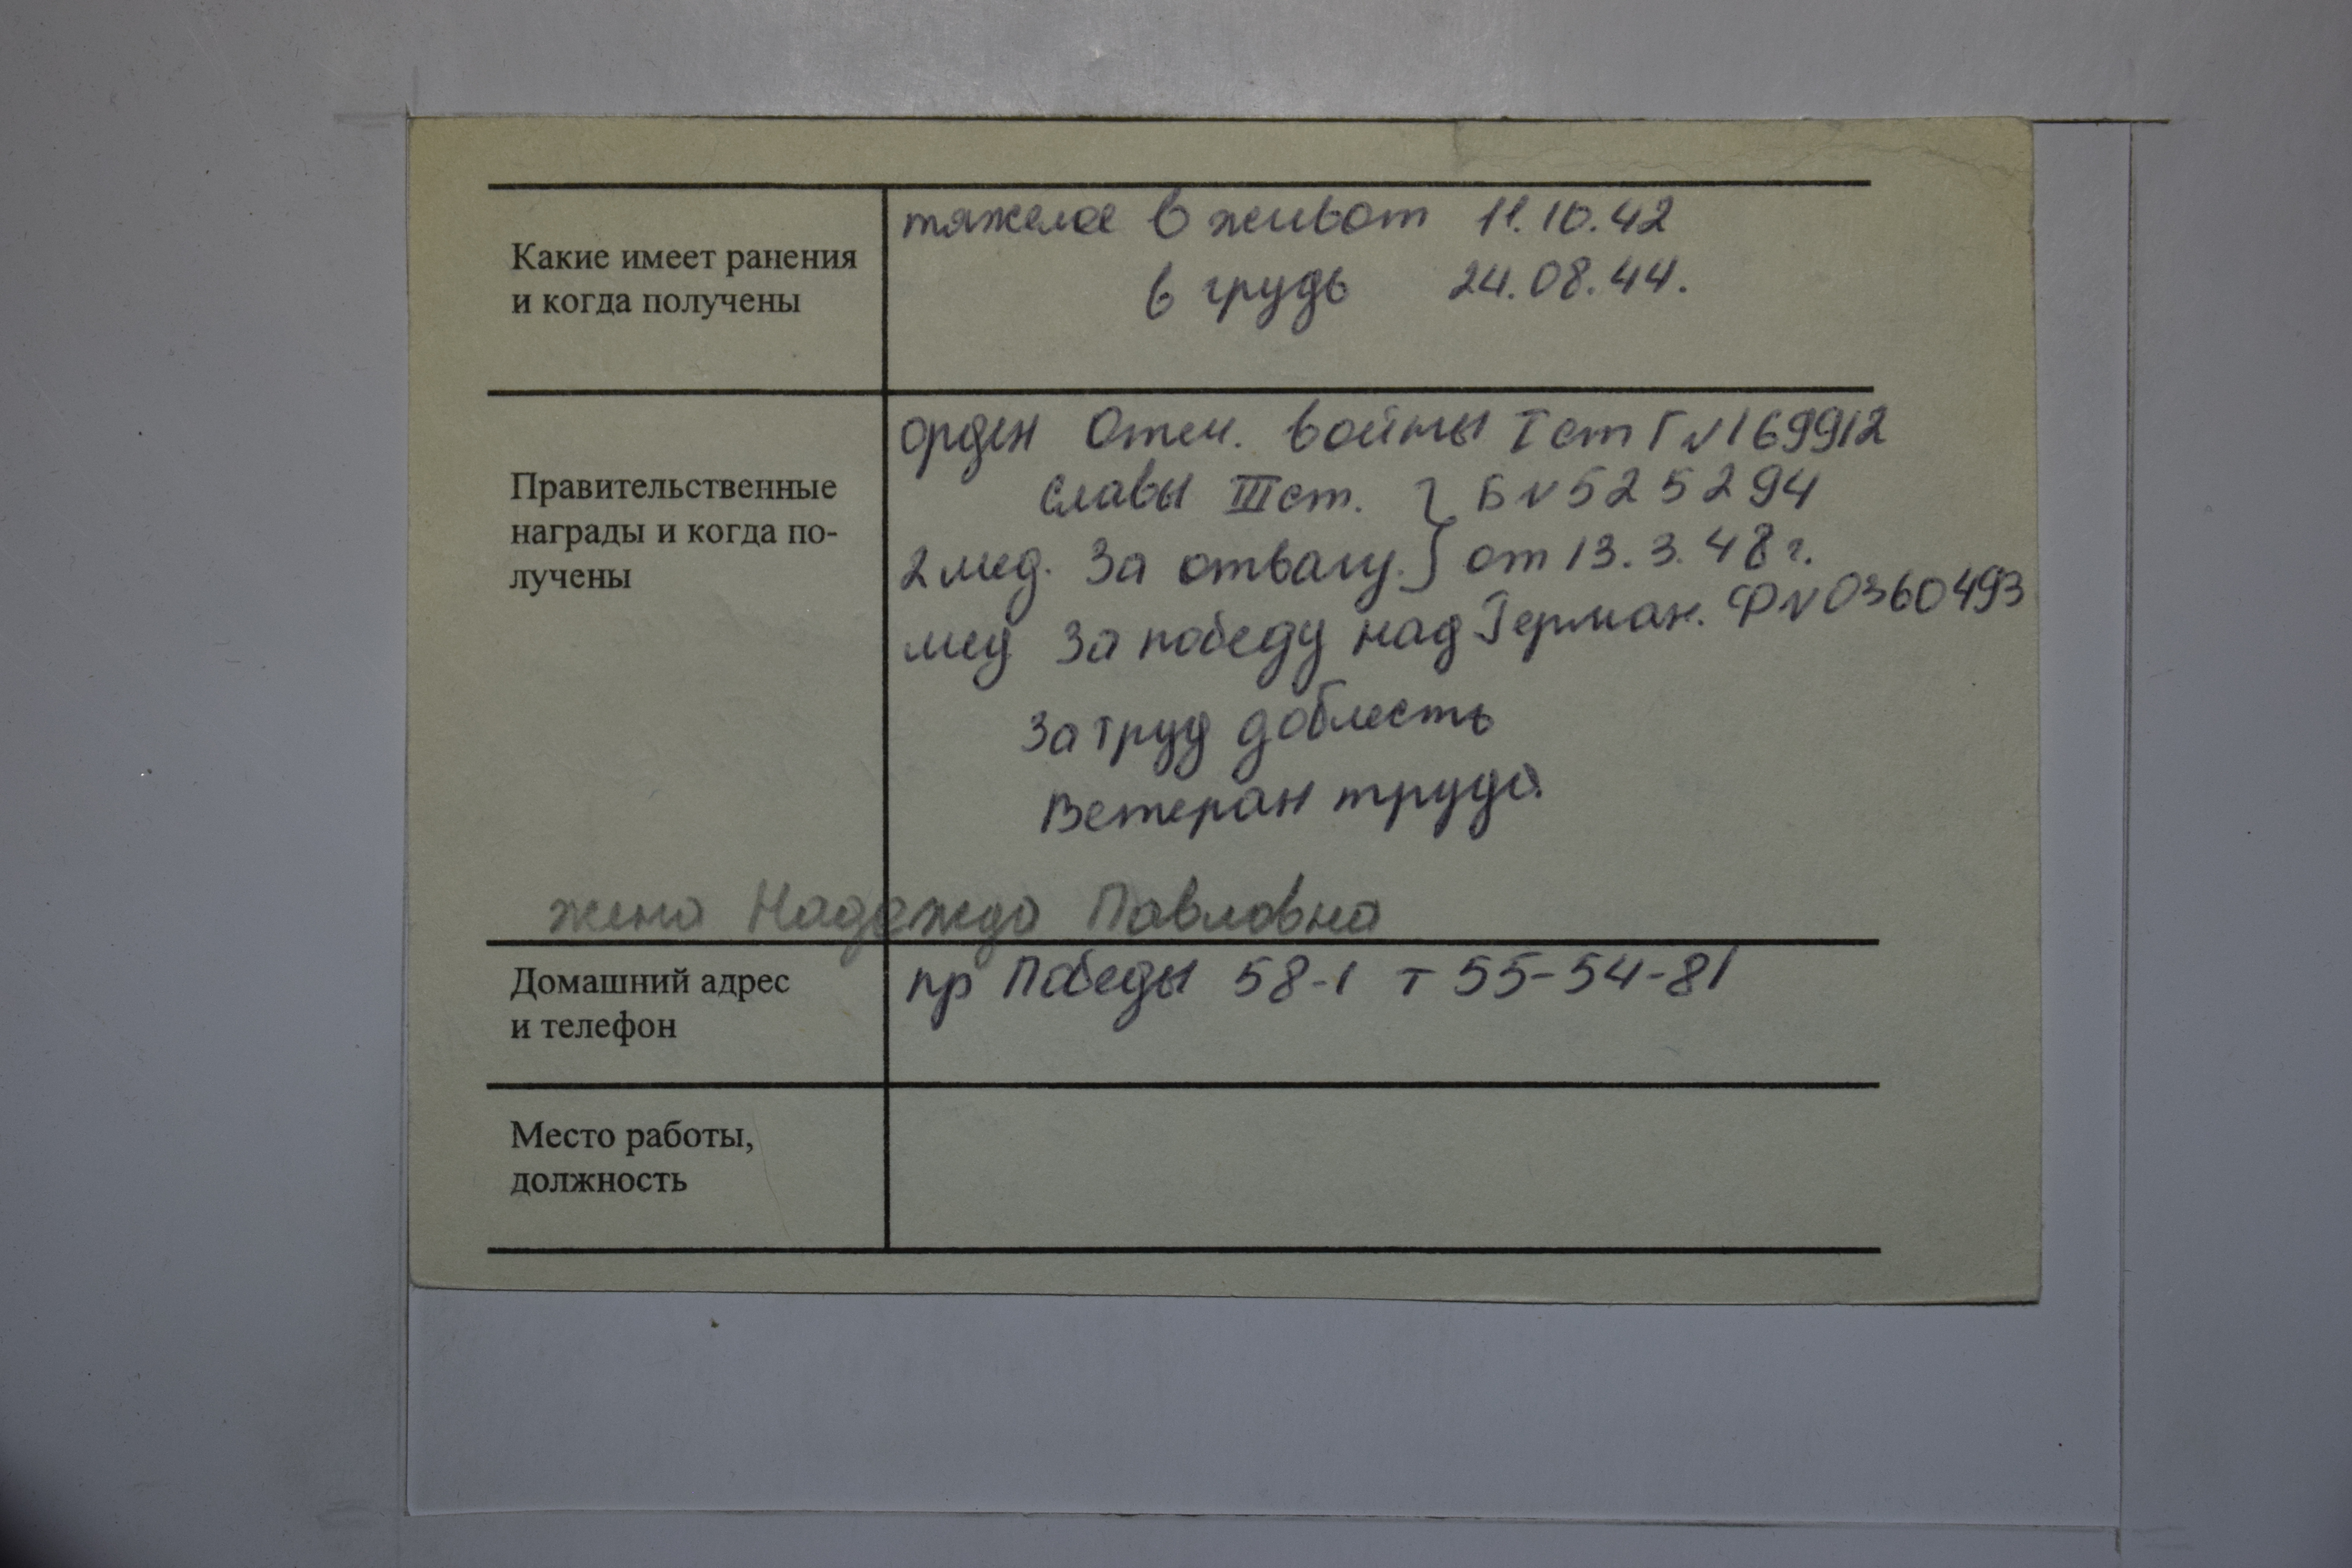 Какие имеет ранения
и когда получены
тяжелое в живот 11.10.42
в грудь 24.08.44.
Правительственные
награды и когда по-
лучены
орден Отеч. войны I ст Г №169912
Славы III ст. } Б№525294
2 мед. За отвагу. } от 13.3.48 г.
мед За победу над Герман. Ф№0360493
За труд доблесть
Ветеран труда.
жена Надежда Павловна
Домашний адрес
и телефон
пр Победы 58-1 т 55-54-81
Место работы,
должность